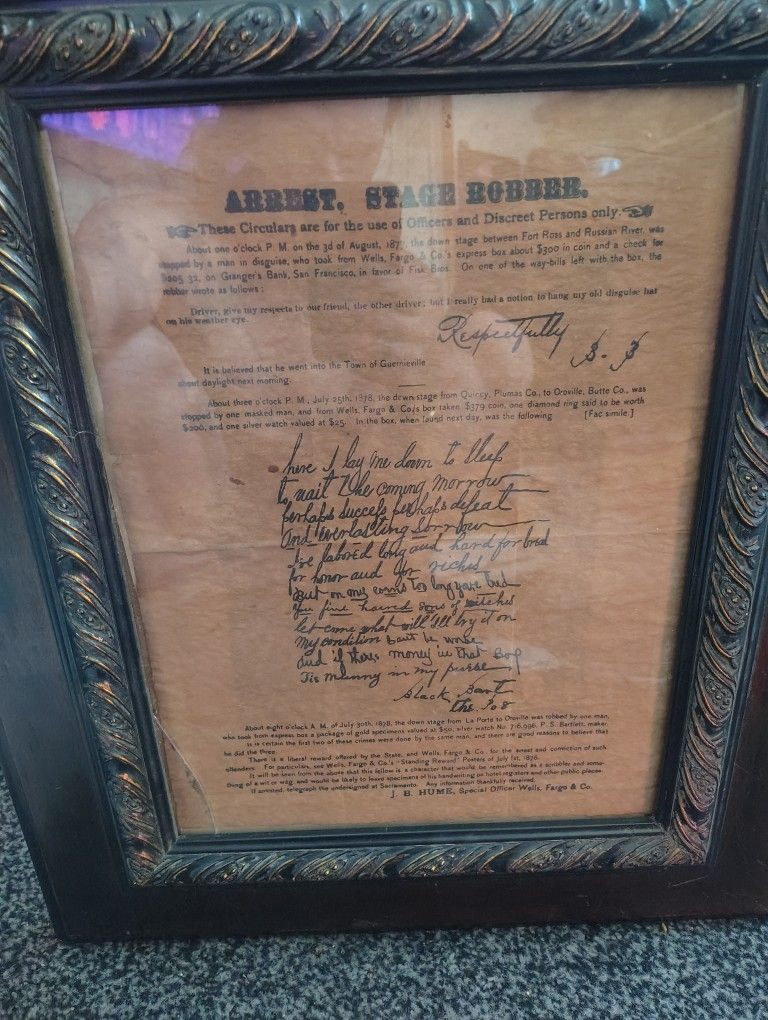 ARREST. STAGE ROBBER.
These Circulars are for the use of Officers and Discreet Persons only.
About one o'clock P. M. on the 3d of August, 1877, the down stage between Fort Ross and Russian River, was
stopped by a man in disguise, who took from Wells, Fargo & Co.'s express box about $300 in coin and a check for
205 32, on Granger's Bank, San Francisco, in favor of Fisk Bros. On one of the way-bills left with the box, the
robber wrote as follows:
Driver, give my respects to our friend, the other driver; but I really had a notion to hang my old disguise hat
on his weather eye.
Respectfully
B. B
It is believed that he went into the Town of Guerneville
about daylight next morning.
About three o'clock P. M., July 25th, 1878, the down stage from Quincy, Plumas Co., to Oroville, Butte Co., was
stopped by one masked man, and from Wells, Fargo & Co.'s box taken $379 coin, one diamond ring said to be worth
$200, and one silver watch valued at $25. In the box, when found next day, was the following [Fac simile.]
here I lay me down to Sleep
to wait the coming morrow
perhaps success perhaps defeat
And everlasting Sorrow
I've labored long and hard for bred
for honor and for riches
But on my corns too long yove tred
You fine haired sons of Bitches
let come what will I'll try it on
My condition cant be worse
and if theres money in that Box
Tis munny in my purse
Black Bart
the Po8
About eight o'clock A. M. of July 30th, 1878, the down stage from La Porte to Oroville was robbed by one man,
who took from express box a package of gold specimens valued at $50, silver watch No. 716,996, P. S. Bartlett, maker.
It is certain the first two of these crimes were done by the same man, and there are good reasons to believe that
he did the three.
There is a liberal reward offered by the State, and Wells, Fargo & Co. for the arrest and conviction of such
offenders. For particulars, see Wells, Fargo & Co.'s "Standing Reward" Posters of July 1st, 1876.
It will be seen from the above that this fellow is a character that would be remembered as a scribbler and some-
thing of a wit or wag, and would be likely to leave specimens of his handwriting on hotel registers and other public places.
If arrested, telegraph the undersigned at Sacramento. Any information thankfully received.
J. B. HUME, Special Officer Wells, Fargo & Co.